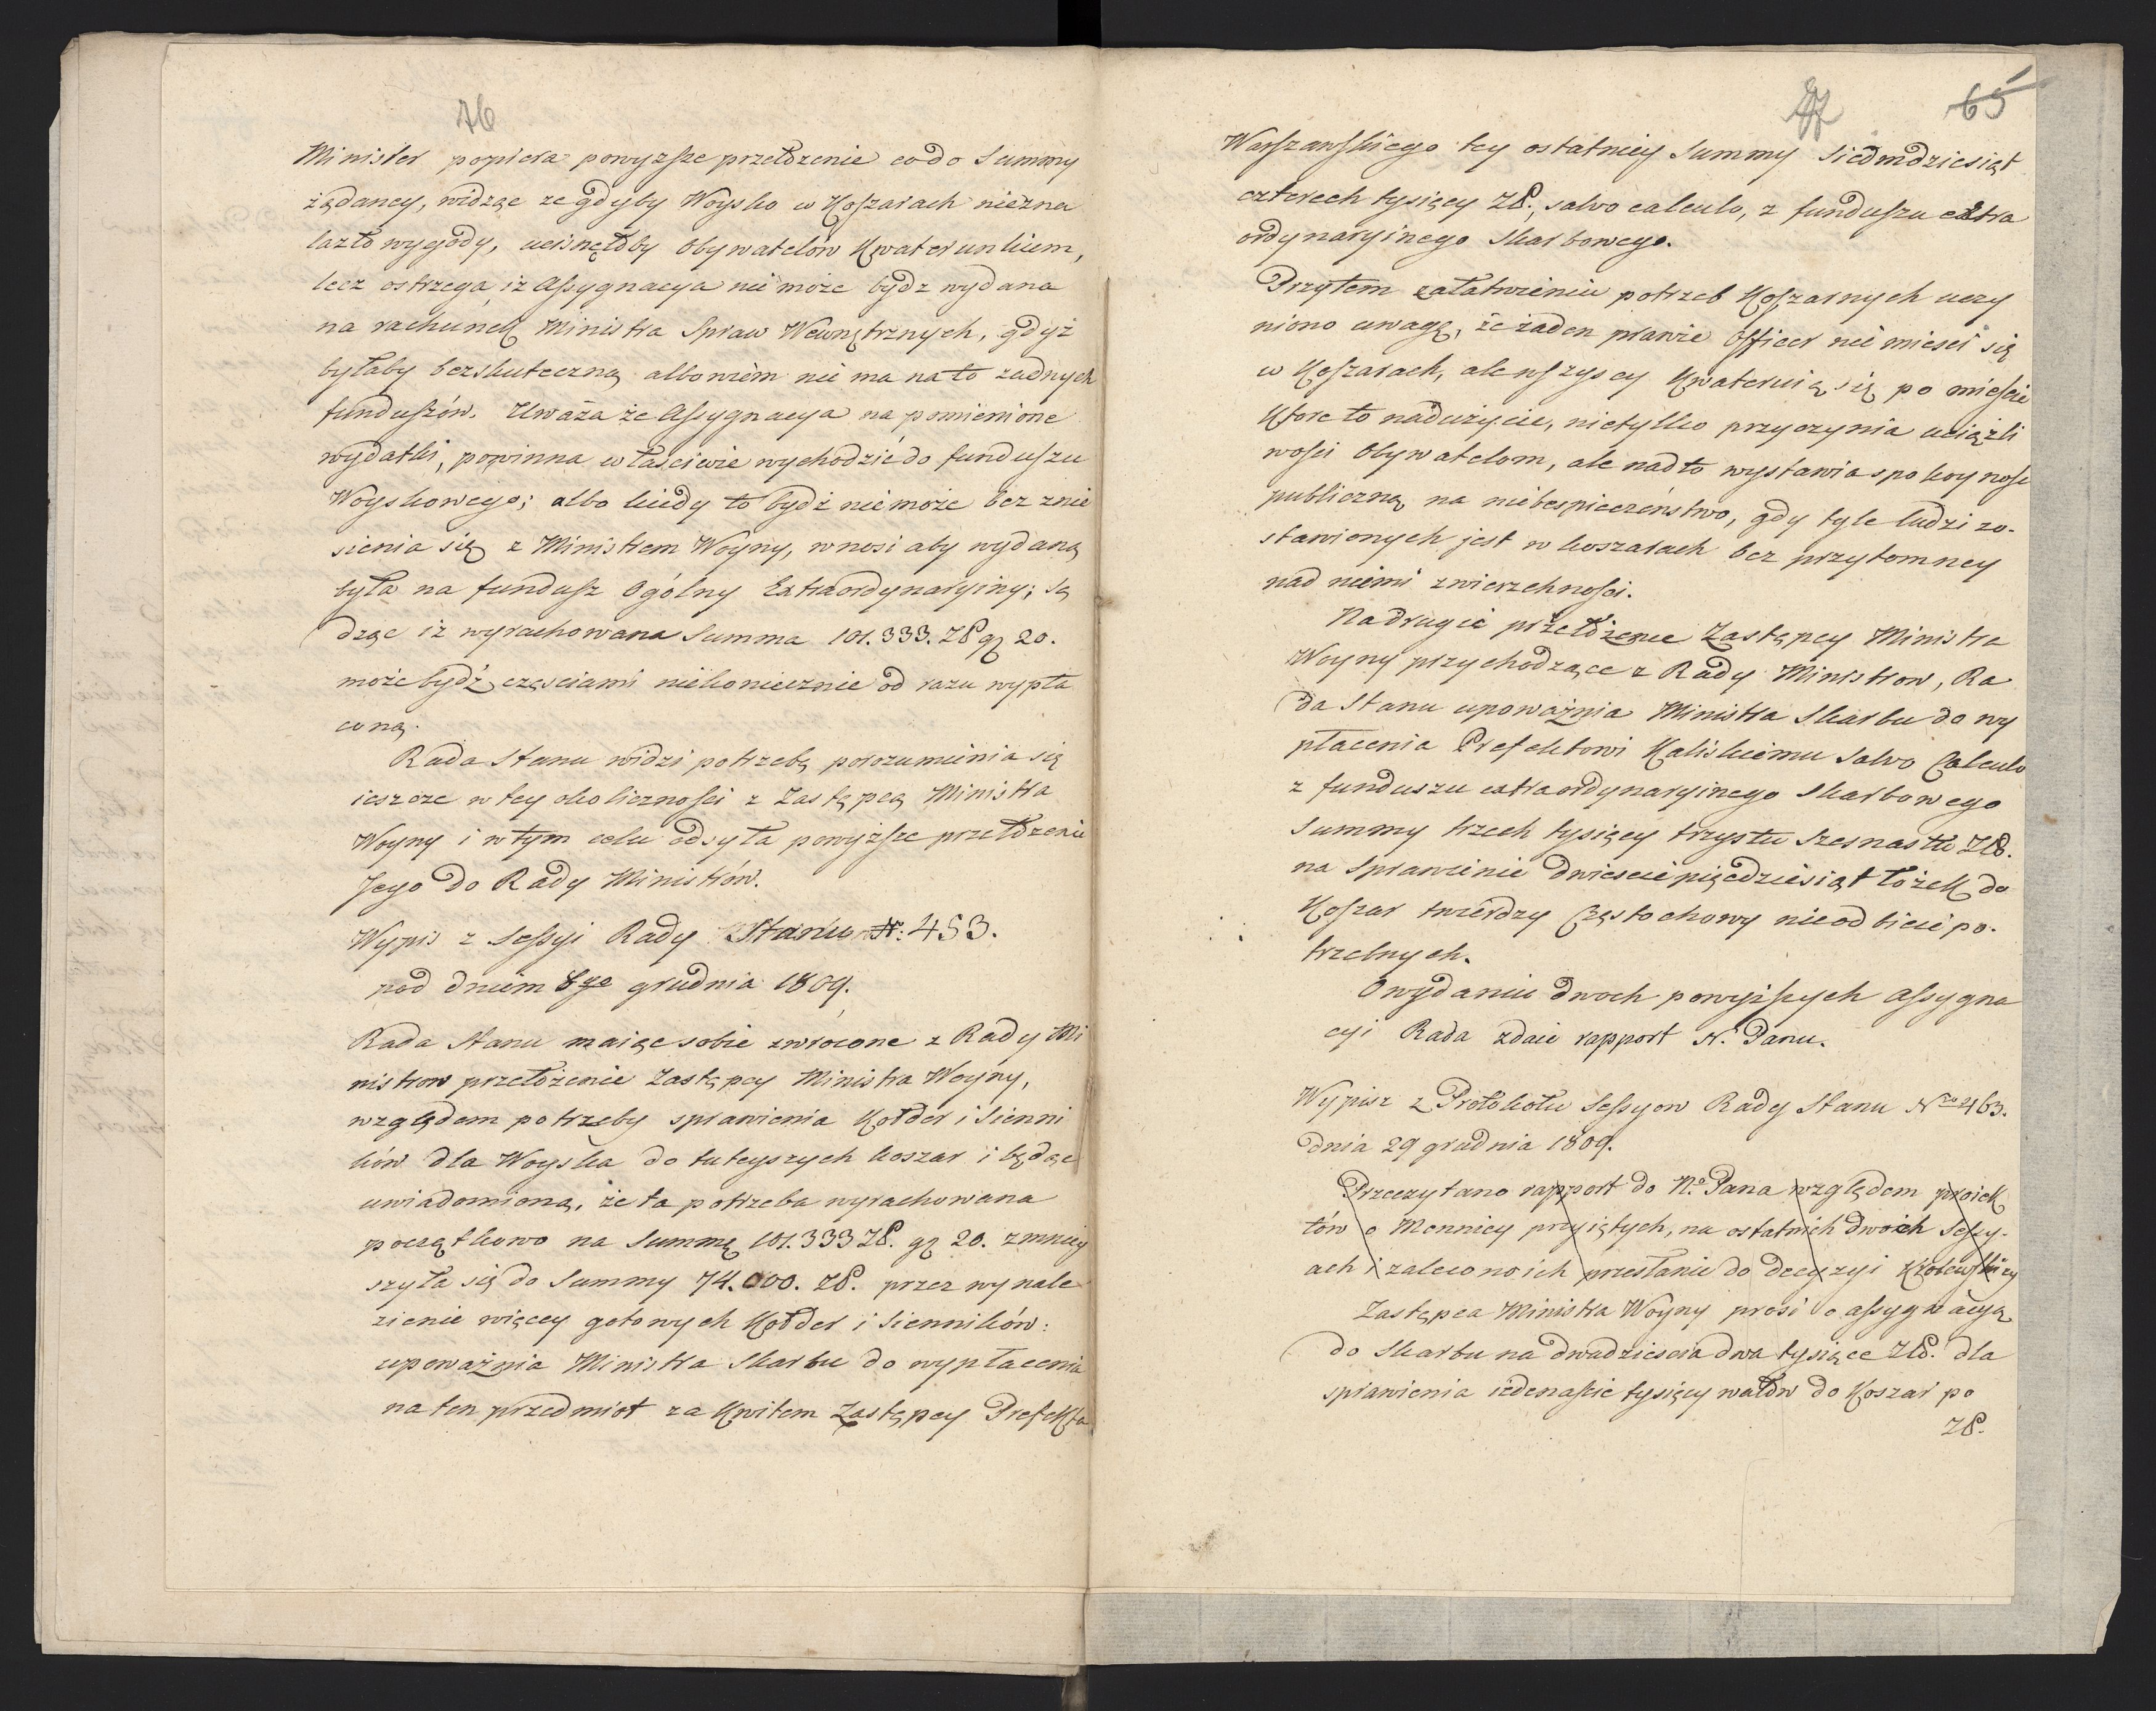 76
Minister popiera powyzsze przełożenie codo Summy
żądaney, widząc ze gdyby Woysko w Koszarach niezna
lazło wygody, ucisnęłoby Obywatelów Kwaterunkiem,
lecz ostrzega iz Assygnacya nie może bydz wydana
na rachunek Ministra Spraw Wewnętrznych, gdyż
byłaby bezskuteczną albowiem nie ma na to zadnych
funduszów. Uważa że Assygnacya na pomienione
wydatki, powinna właściwie wychodzić do funduszu
Woyskowego; albo kiedy to bydź nie może bez znie
sienia się z Ministrem Woyny, wnosi aby wydaną
była na fundusz Ogólny Extraordynaryiny; są
dząc iż wyrachowana Summa 101.333. Zł gr 20.
może bydź częściami niekoniecznie od razu wypła
coną.
Rada Stanu widzi potrzebę porozumienia się
ieszcze w tey okoliczności z Zastępcą Ministra
Woyny i w tym celu odsyła powyższe przełożenie
Jego do Rady Ministrów.
Wypis z Sessyi Rady Stanu N: 453.
pod dniem 8go grudnia 1809.
Rada Stanu maiąc sobie zwrocone z Rady Mi
nistrow przełożenie Zastępcy Ministra Woyny,
względem potrzeby sprawienia Kołder i Sienni
ków dla Woyska do tuteyszych koszar i będąc
uwiadomioną, że ta potrzeba wyrachowana
początkowo na Summę 101.333 Zł. gr 20. zmniey
szyła się do Summy 74.000. Zł. przez wynale
zienie więcey gotowych Kołder i Sienników:
upoważnia Ministra Skarbu do wypłacenia
na ten przedmiot za Kwitem Zastępcy Prefekta
65
Warszawskiego tey ostatniey Summy Siedmdziesiąt
czterech tysięcy Zł., salvo calculo, z funduszu extra
ordynaryinego Skarbowego.
Przytem załatwieniu potrzeb Koszarnych uczy
niono uwagę, że żaden prawie officer nie mieści się
w Koszarach, ale wszyscy Kwateruią się po mieście
Ktore to nadużycie, nietylko przyczynia uciążli
wości Obywatelom, ale nadto wystawia spokoyność
publiczną na niebespieczeństwo, gdy tyle ludzi zo-
stawionych jest w koszarach bez przytomney
nad niemi zwierzchności.
Na drugie przełożenie Zastępcy Ministra
Woyny przychodzące z Rady Ministrow, Ra
da Stanu upoważnia Ministra Skarbu do wy
płacenia Prefektowi Kaliskiemu Salvo Calculo
z funduszu extraordynaryinego Skarbowego
Summy trzech tysięcy trzystu szesnastu Zło.
na Sprawienie dwieście pięcdziesiąt łożek do
Koszar twierdzy Częstochowy nieodbicie po-
trzebnych.
O wydaniu dwoch powyższych Assygna
cyi Rada zdaie rapport N. Panu.
Wypisz z Protokołu Sessyow Rady Stanu Nro 463.
dnia 29 grudnia 1809.
Przeczytano rapport do N.o Pana względem proiek
tów o Mennicy przyiętych, na ostatnich dwoich Sessy-
ach i zalecono ich przesłanie do decyzyi Krolewskiey
Zastępca Ministra Woyny prosi o assygnacyą
do Skarbu na dwadzieścia dwa tysiące Zło. dla
sprawienia iedenaście tysięcy wałów do Koszar po
Zł.